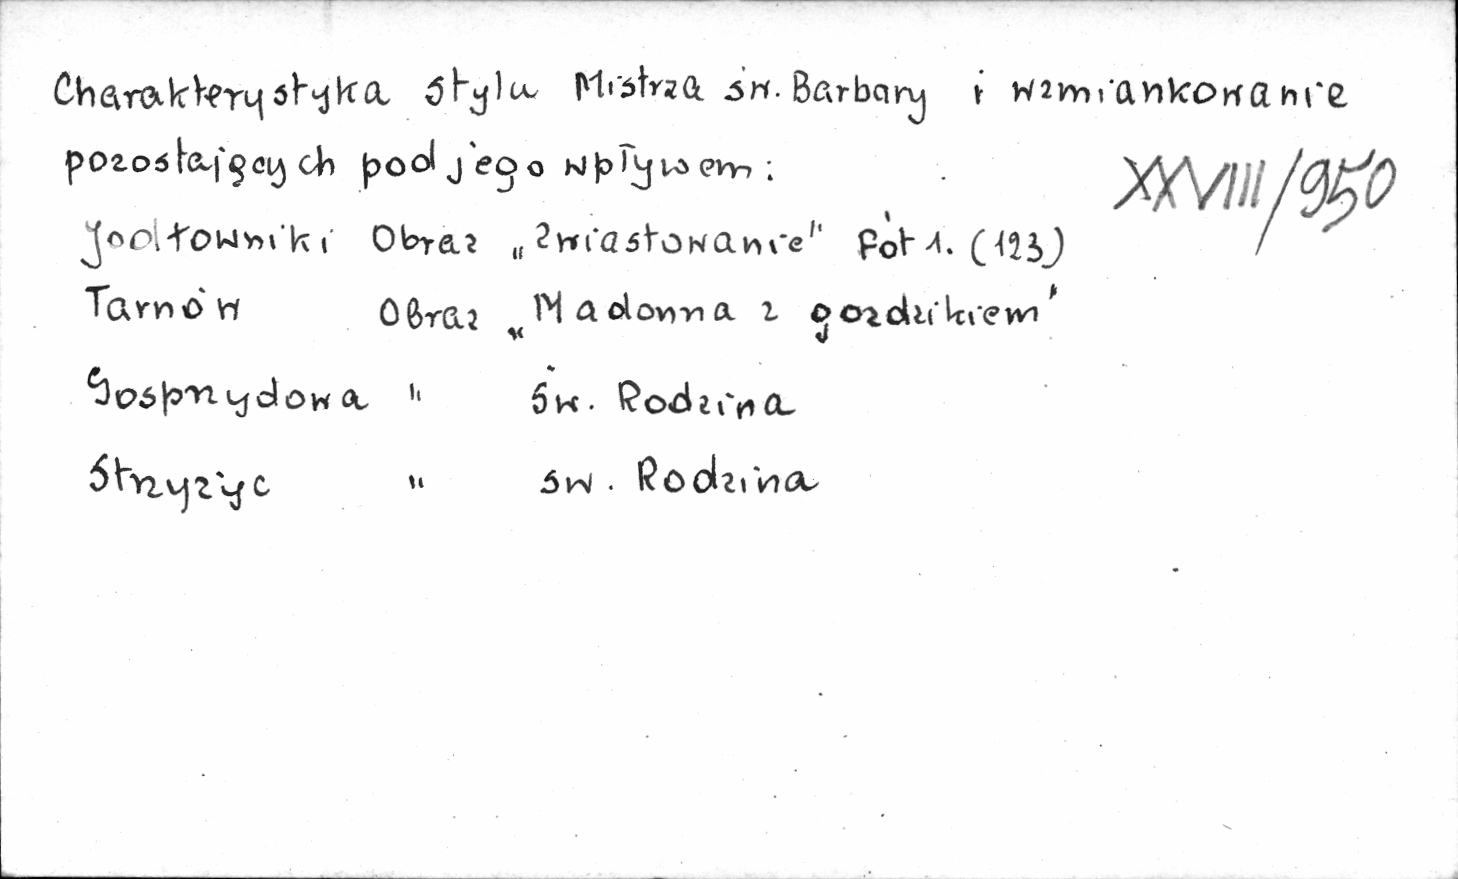 Charakterystyka stylu Mistrza św. Barbary i wzmiankowanie
pozostających pod jego wpływem:
XXVIII/950
Jodłowniki Obraz „Zwiastowanie" fot 1. (123)
Tarnów Obraz „Madonna z gozdzikiem"
Gosprzydowa " Św. Rodzina
Strzyżyc " sw. Rodzina